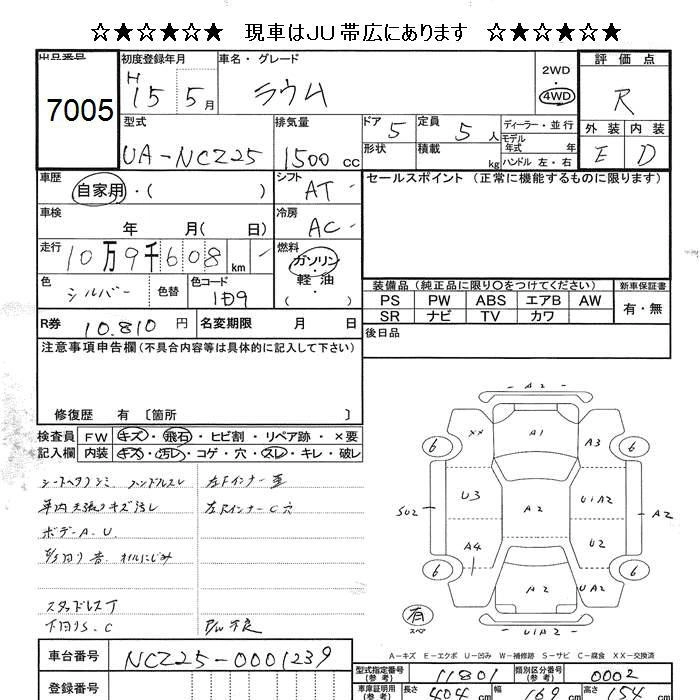 ☆★☆★☆★ 現車はJU帯広にあります ☆★☆★☆★
出品番号 7005
初度登録年月 H15 5月
車名・グレード ラウム
2WD
4WD
評価点 R
外装 E 内装 D
型式 UA-NCZ25
排気量 1500 cc
ドア 5
定員 5人
形状
積載 kg
ディーラー・並行
モデル年式 年
ハンドル 左・右
車歴 自家用・( )
シフト AT
車検 年 月( 日)
冷房 AC
走行 10万9千608 km
燃料 ガソリン・軽油
色 シルバー 色替
色コード 1D9
R券 10.810 円 名変期限 月 日
セールスポイント (正常に機能するものに限ります)
装備品 (純正品に限り○をつけてください)
新車保証書 有・無
PS PW ABS エアB AW
SR ナビ TV カワ
後日品
注意事項申告欄 (不具合内容等は具体的に記入して下さい)
修復歴 有 〔箇所 〕
検査員記入欄
FW キズ・飛石・ヒビ割・リペア跡・×要
内装 キズ・汚レ・コゲ・穴・スレ・キレ・破レ
シートヘタリシミ ハンドルスレ
車内天張りキズ汚レ
ボデーA.U
スタッドレスT
下回りS.C
左Fインナー
左RインナーC穴
A2
XX A1 A3
6 6
U3 A2 U1A2
SU2 A2
A4 U2
6 6
A2 UA2
有 スペア
U1A2
A−キズ E−エクボ U−凹み W−補修跡 S−サビ C−腐食 XX−交換済
車台番号 NCZ25-0001239
登録番号
型式指定番号(参考) 11801
類別区分番号(参考) 0002
車庫証明用(参考) 長さ 404 cm 幅 169 cm 高さ 154 cm